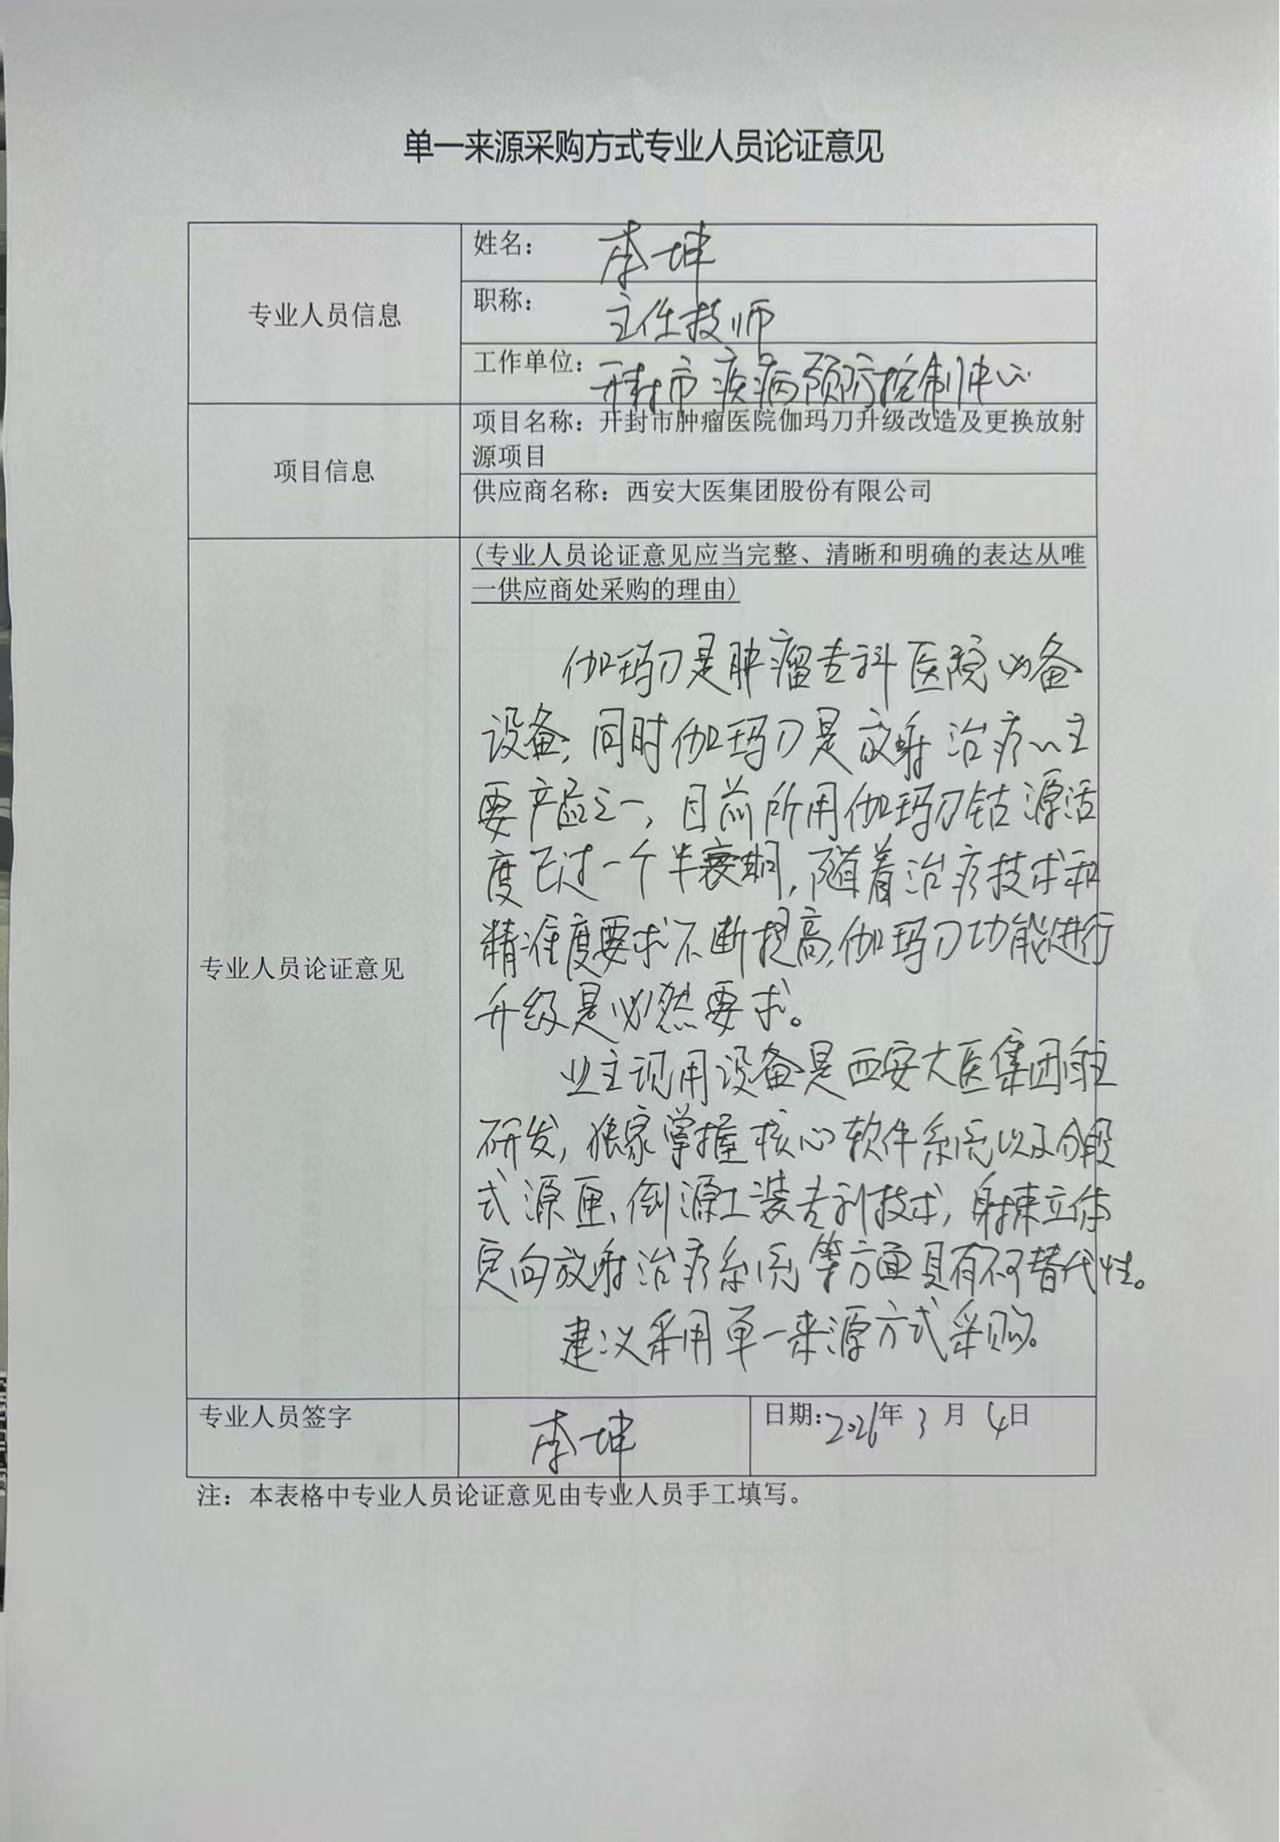 单一来源采购方式专业人员论证意见
专业人员信息
姓名： 李坤
职称： 主任技师
工作单位： 开封市疾病预防控制中心
项目信息
项目名称：开封市肿瘤医院伽玛刀升级改造及更换放射
源项目
供应商名称：西安大医集团股份有限公司
专业人员论证意见
(专业人员论证意见应当完整、清晰和明确的表达从唯
一供应商处采购的理由)
伽玛刀是肿瘤专科医院必备
设备，同时伽玛刀是放射治疗的主
要产品之一，目前所用伽玛刀钴源活
度已过一个半衰期，随着治疗技术和
精准度要求不断提高，伽玛刀功能进行
升级是必然要求。
业主现用设备是西安大医集团自主
研发，独家掌握核心软件系统以及分段
式源匣、倒源工装专利技术，射束立体
定向放射治疗系统等方面具有不可替代性。
建议采用单一来源方式采购。
专业人员签字
李坤
日期：2026年3月4日
注：本表格中专业人员论证意见由专业人员手工填写。